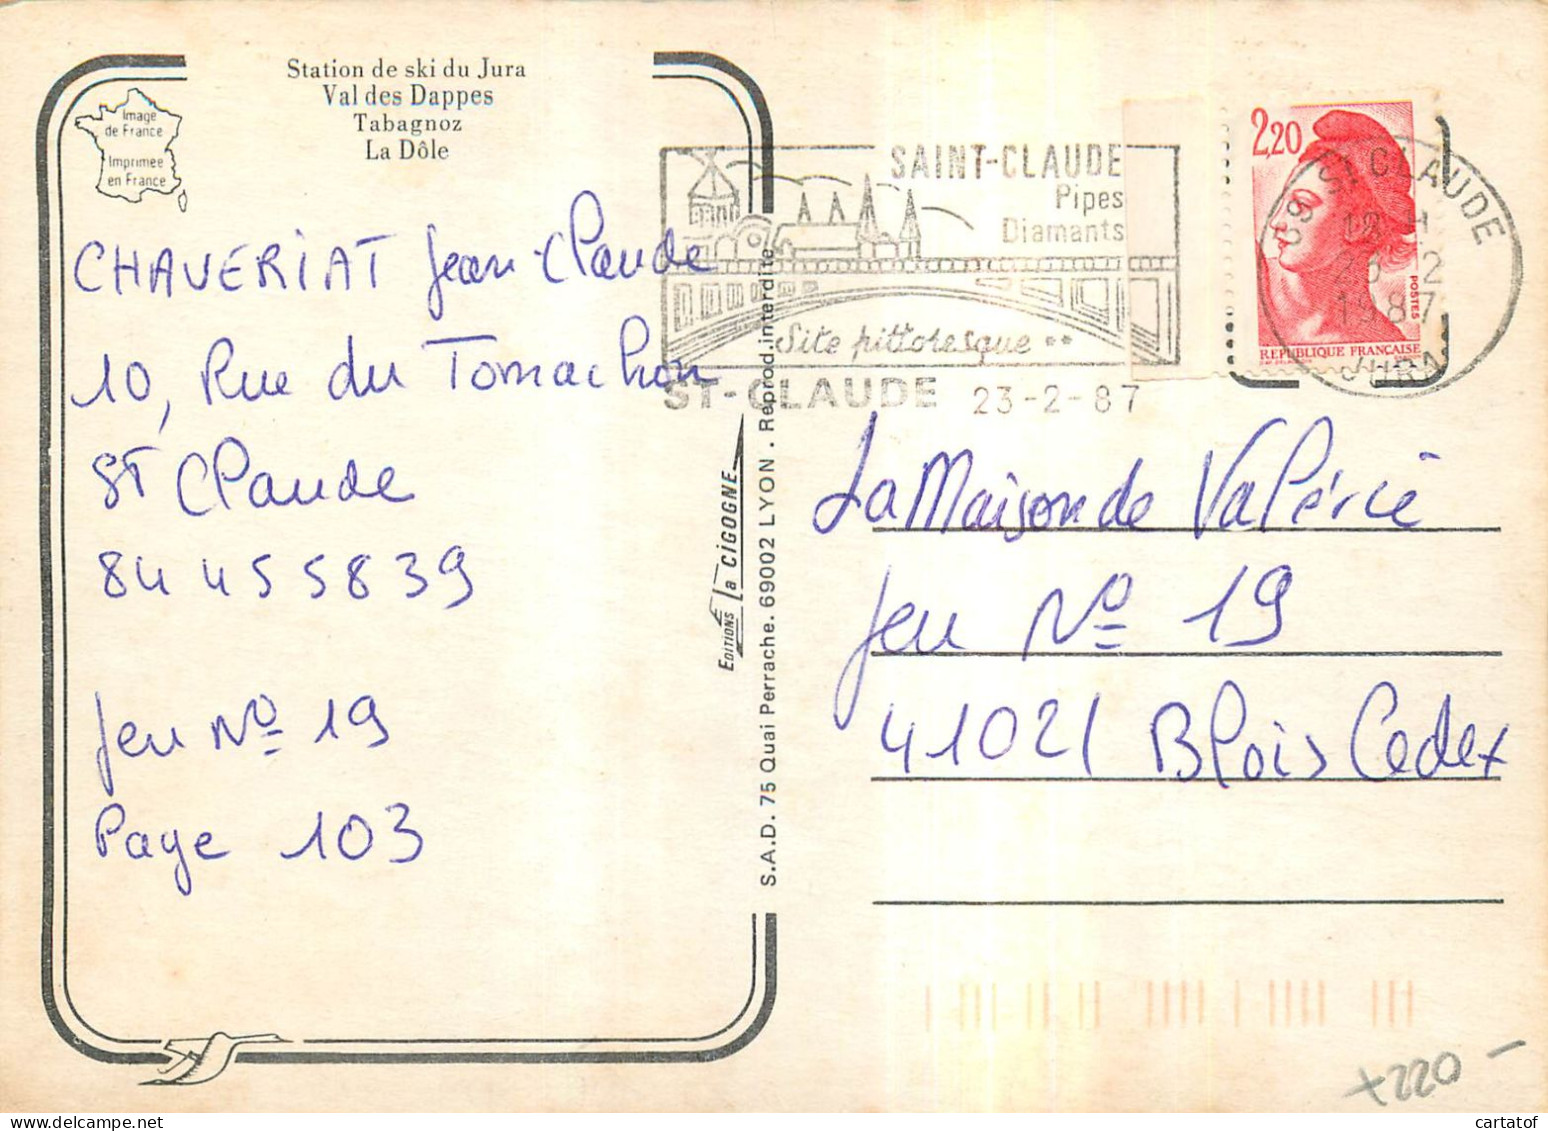 Station de ski du Jura
Val des Dappes
Tabagnoz
La Dôle
Image
de France
Imprimée
en France
CHAVERIAT Jean-Claude
10, Rue du Tomachon
ST Claude
84 45 58 39
Jeu N° 19
Page 103
EDITIONS la CIGOGNE
S.A.D. 75 Quai Perrache. 69002 LYON . Reprod. interdite
SAINT-CLAUDE
Pipes
Diamants
Site pittoresque **
ST-CLAUDE 23-2-87
2,20
POSTES
REPUBLIQUE FRANÇAISE
39 ST CLAUDE
18 H
23 2
1987
JURA
La Maison de Valérie
Jeu N° 19
41021 Blois Cedex
x220 -
cartatof